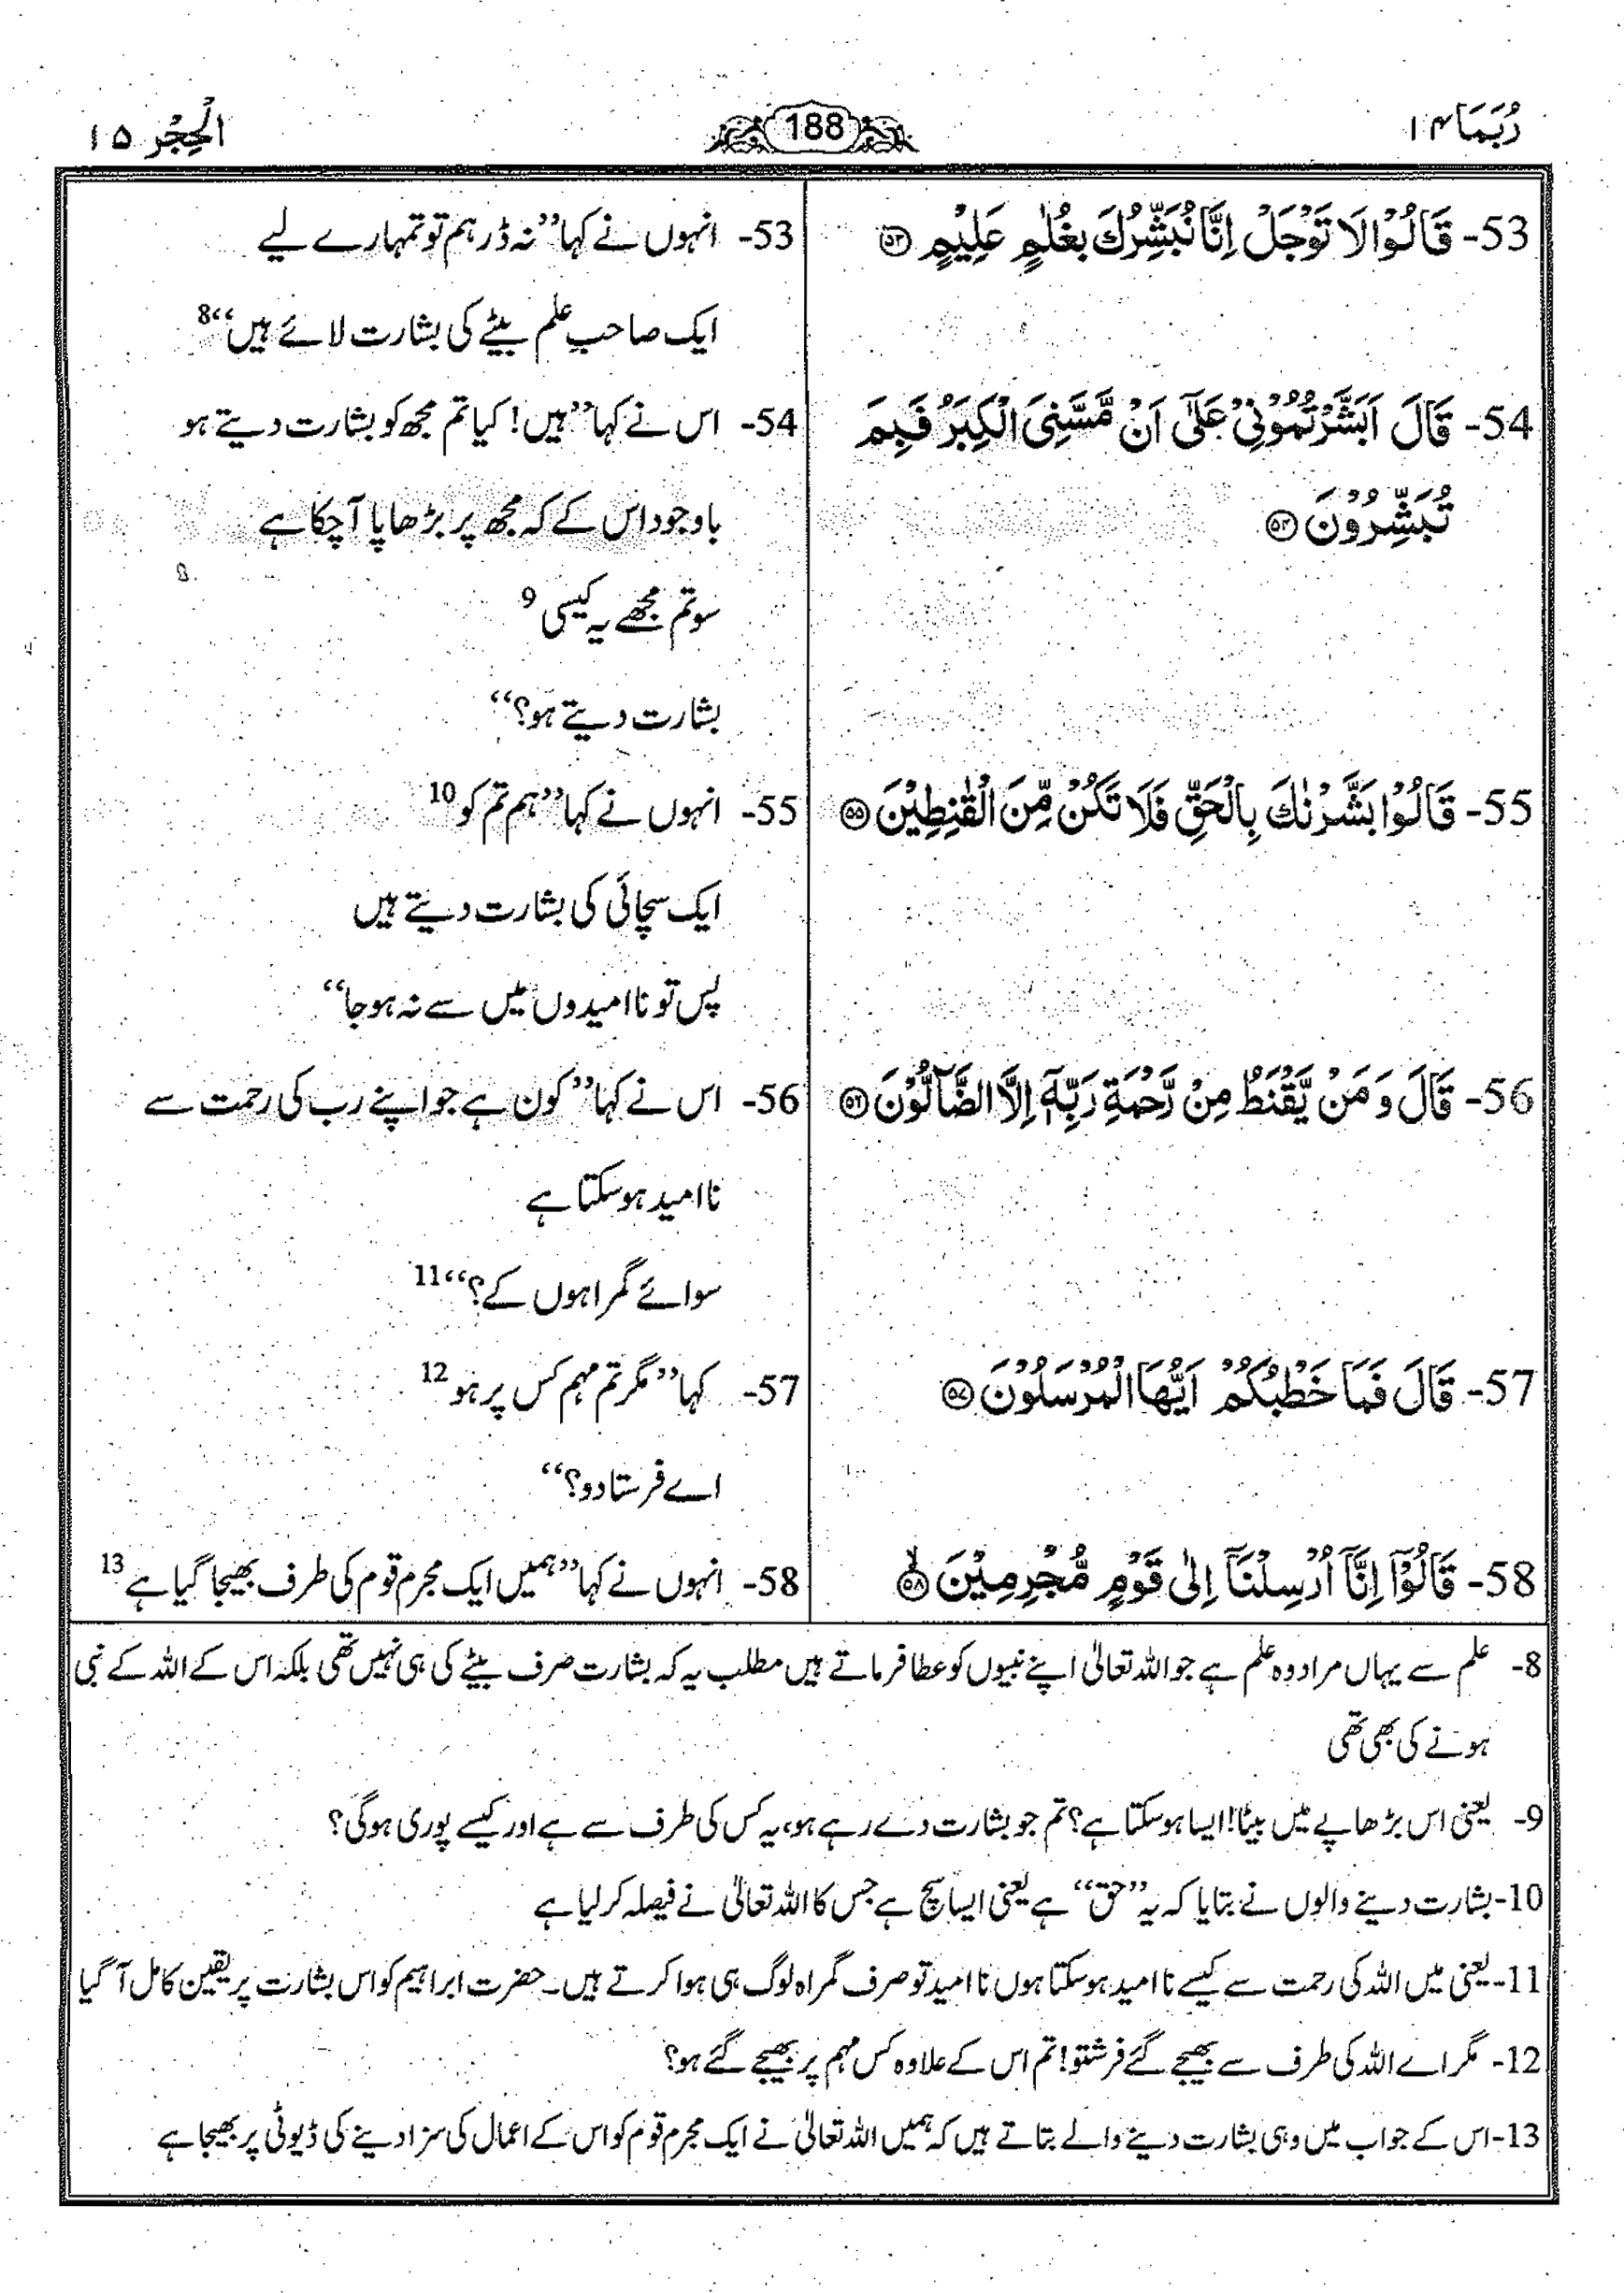 رُبَمَا ۱۴
188
الْحِجْر ۱۵
53- قَالُوْا لَا تَوْجَلْ اِنَّا نُبَشِّرُكَ بِغُلٰمٍ عَلِيْمٍ ۝۵۳
54- قَالَ اَبَشَّرْتُمُوْنِيْ عَلٰٓى اَنْ مَّسَّنِيَ الْكِبَرُ فَبِمَ
تُبَشِّرُوْنَ ۝۵۴
55- قَالُوْا بَشَّرْنٰكَ بِالْحَقِّ فَلَا تَكُنْ مِّنَ الْقٰنِطِيْنَ ۝۵۵
56- قَالَ وَ مَنْ يَّقْنَطُ مِنْ رَّحْمَةِ رَبِّهٖٓ اِلَّا الضَّآلُّوْنَ ۝۵۶
57- قَالَ فَمَا خَطْبُكُمْ اَيُّهَا الْمُرْسَلُوْنَ ۝۵۷
58- قَالُوْٓا اِنَّآ اُرْسِلْنَآ اِلٰى قَوْمٍ مُّجْرِمِيْنَ ۝۵۸ۙ
53- انہوں نے کہا ’’نہ ڈر ہم تو تمہارے لیے
ایک صاحبِ علم بیٹے کی بشارت لائے ہیں‘‘8
54- اس نے کہا ’’ہیں! کیا تم مجھ کو بشارت دیتے ہو
باوجود اس کے کہ مجھ پر بڑھاپا آ چکا ہے
سو تم مجھے یہ کیسی 9
بشارت دیتے ہو؟‘‘
55- انہوں نے کہا ’’ہم تم کو 10
ایک سچائی کی بشارت دیتے ہیں
پس تو ناامیدوں میں سے نہ ہو جا‘‘
56- اس نے کہا ’’کون ہے جو اپنے رب کی رحمت سے
ناامید ہو سکتا ہے
سوائے گمراہوں کے؟‘‘11
57- کہا ’’مگر تم مہم کس پر ہو 12
اے فرستادو؟‘‘
58- انہوں نے کہا ’’ہمیں ایک مجرم قوم کی طرف بھیجا گیا ہے 13
8- علم سے یہاں مراد وہ علم ہے جو اللہ تعالیٰ اپنے نبیوں کو عطا فرماتے ہیں مطلب یہ کہ بشارت صرف بیٹے کی ہی نہیں تھی بلکہ اس کے اللہ کے نبی
ہونے کی بھی تھی
9- یعنی اس بڑھاپے میں بیٹا! ایسا ہو سکتا ہے؟ تم جو بشارت دے رہے ہو، یہ کس کی طرف سے ہے اور کیسے پوری ہو گی؟
10- بشارت دینے والوں نے بتایا کہ یہ ’’حق‘‘ ہے یعنی ایسا سچ ہے جس کا اللہ تعالیٰ نے فیصلہ کر لیا ہے
11- یعنی میں اللہ کی رحمت سے کیسے ناامید ہو سکتا ہوں ناامید تو صرف گمراہ لوگ ہی ہوا کرتے ہیں۔ حضرت ابراہیم کو اس بشارت پر یقین کامل آ گیا
12- مگر اے اللہ کی طرف سے بھیجے گئے فرشتو! تم اس کے علاوہ کس مہم پر بھیجے گئے ہو؟
13- اس کے جواب میں وہی بشارت دینے والے بتاتے ہیں کہ ہمیں اللہ تعالیٰ نے ایک مجرم قوم کو اس کے اعمال کی سزا دینے کی ڈیوٹی پر بھیجا ہے